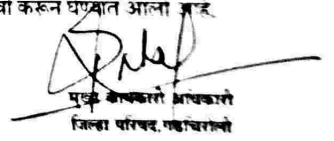 करून घेण्यात आली आहे
मुख्य कार्यकारी अधिकारी
जिल्हा परिषद, गडचिरोली